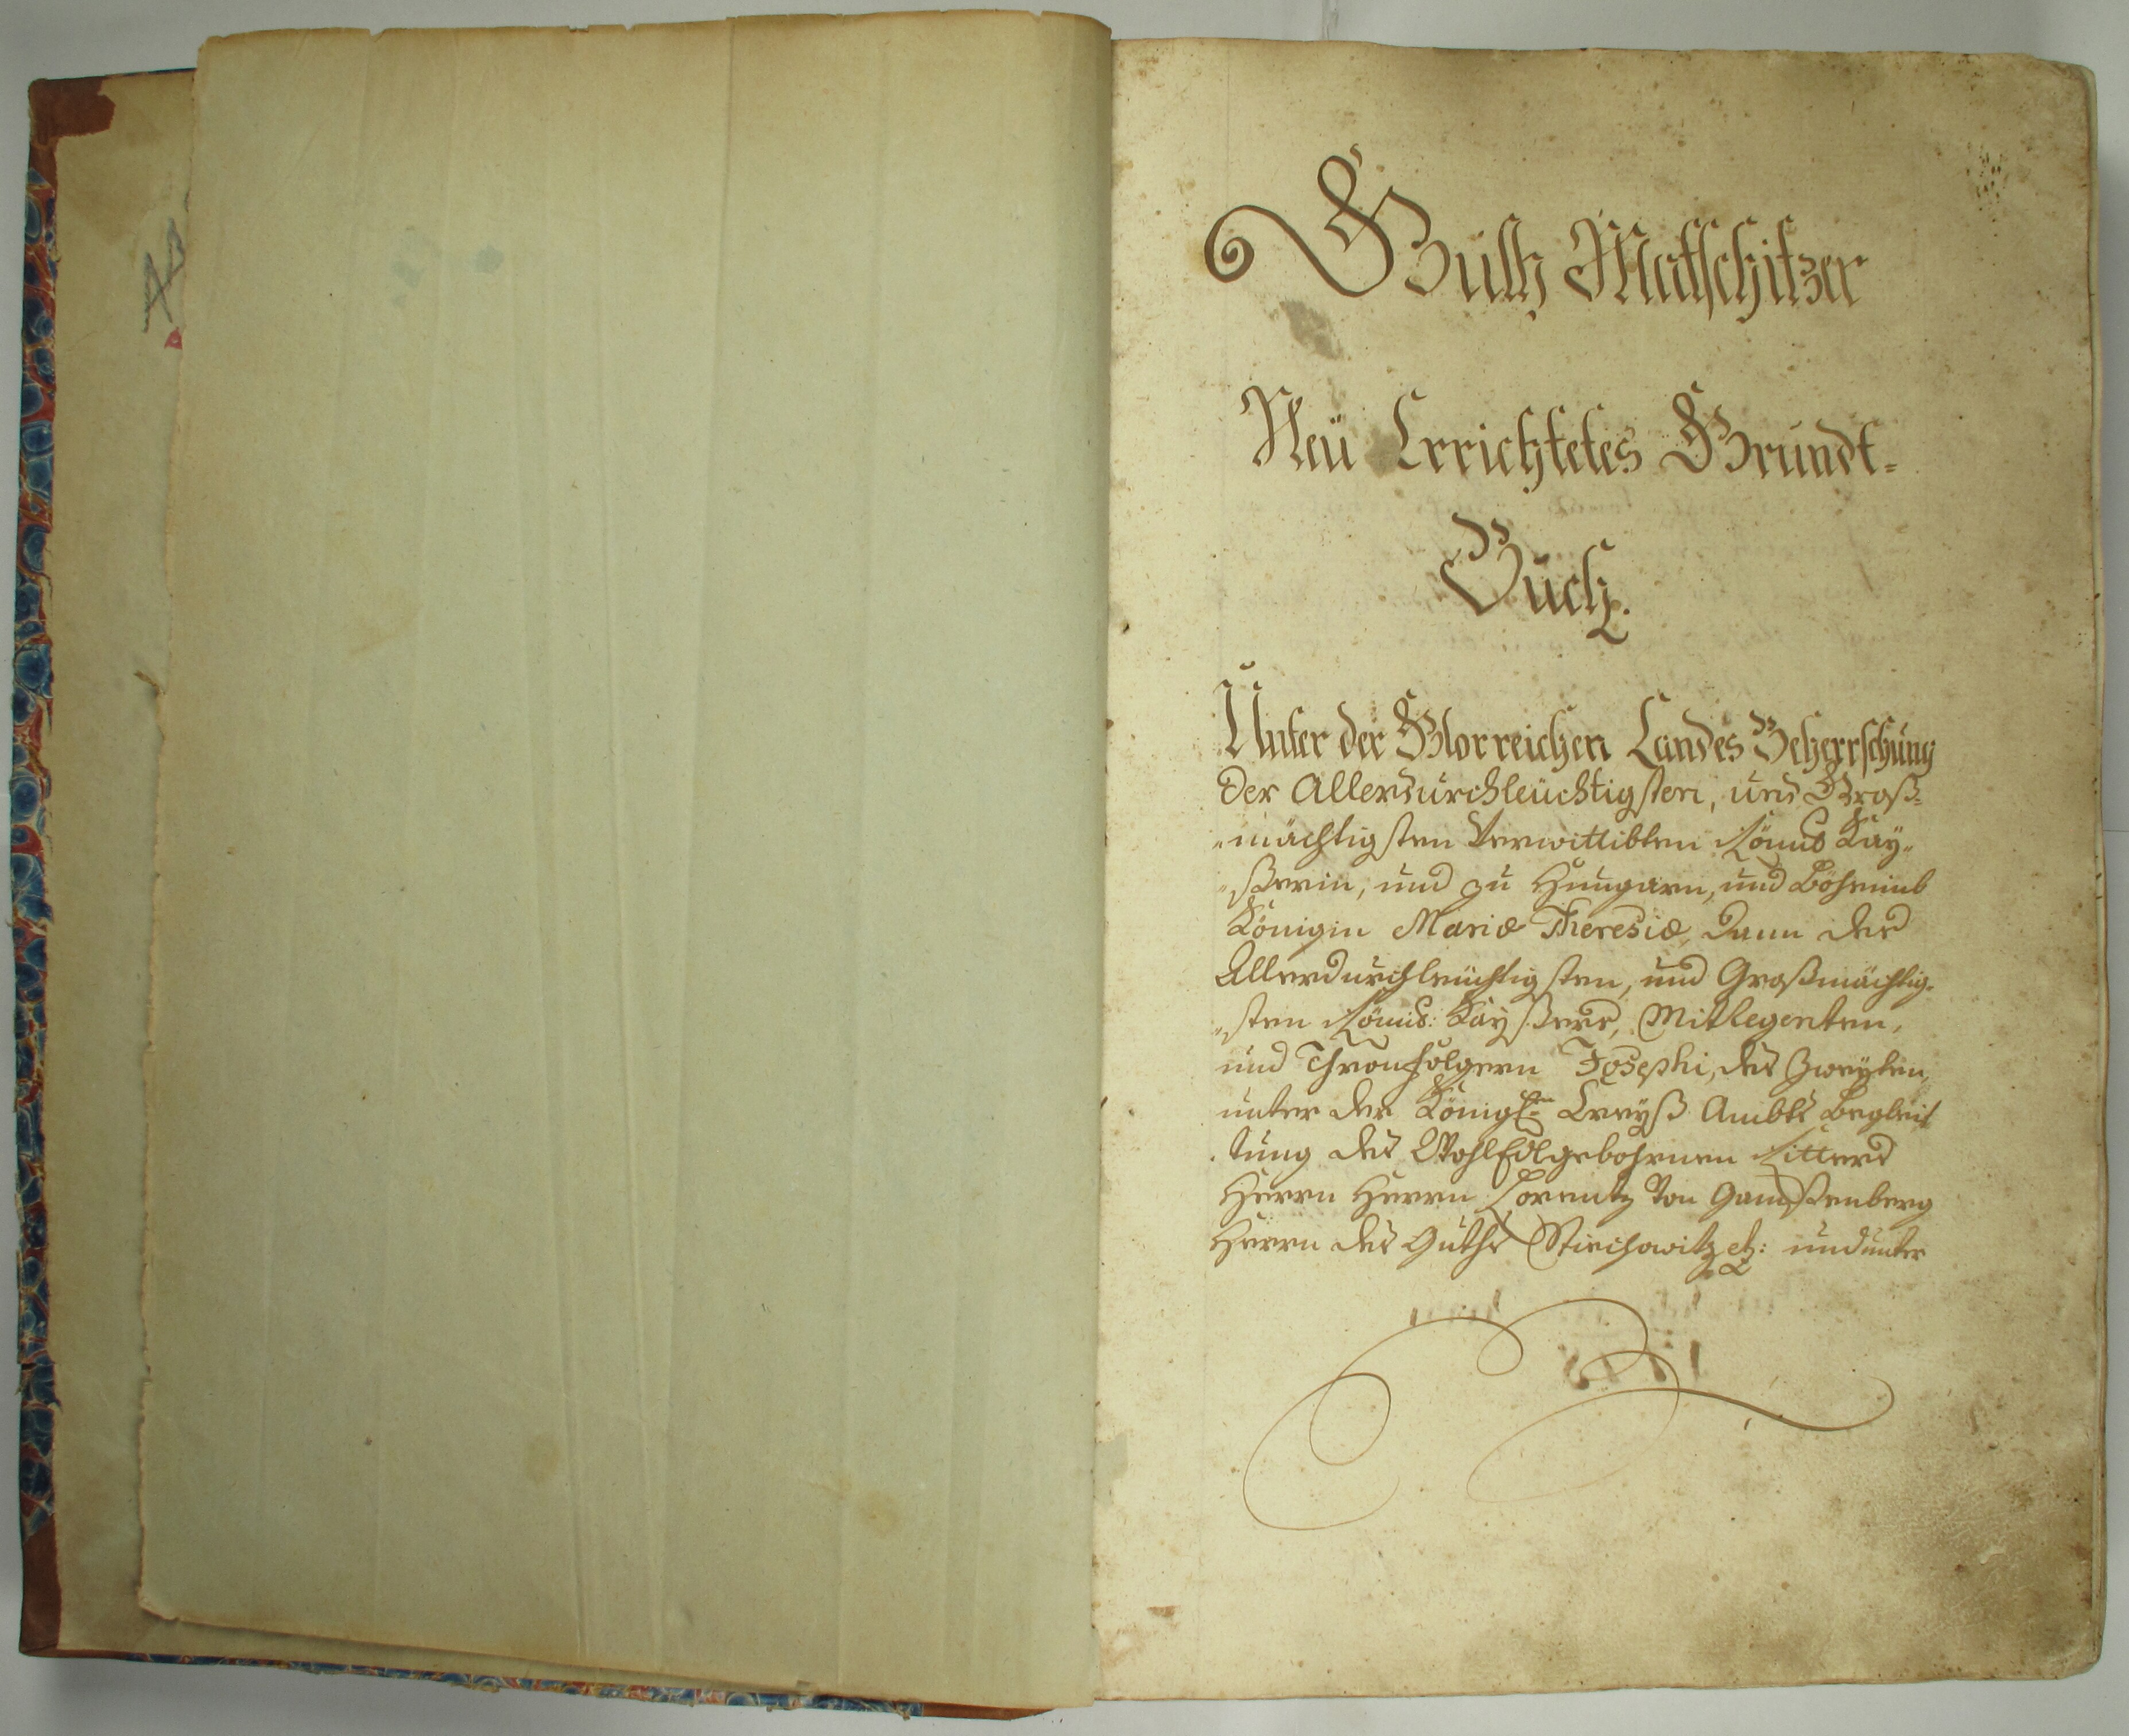 Guth Matschitzer
Neü Errichtetes Grundt=
Buch.
Unter der Glorreichen Landes Beherrschung
der Allerdurchleüchtigsten, und Groß=
„mächtigsten Verwittibten Römis Kay„
„ßerin, und zu Hungarn, und Böheimb
Königin Mariæ Theresiæ, dann des
Allerdurchleüchtigsten, und Großmächtig„
„sten Römis: Kayßers, Mitregenten,
und Thronfolgern Josephi, des Zweyten,
unter der Königl:n Creyß Ambts Begleit
tung des WohlEdlgebohrnen Ritters
Herrn Herrn Lorentz Von Gamßenberg
Herrn des Guths Strichowitz etz: und unter